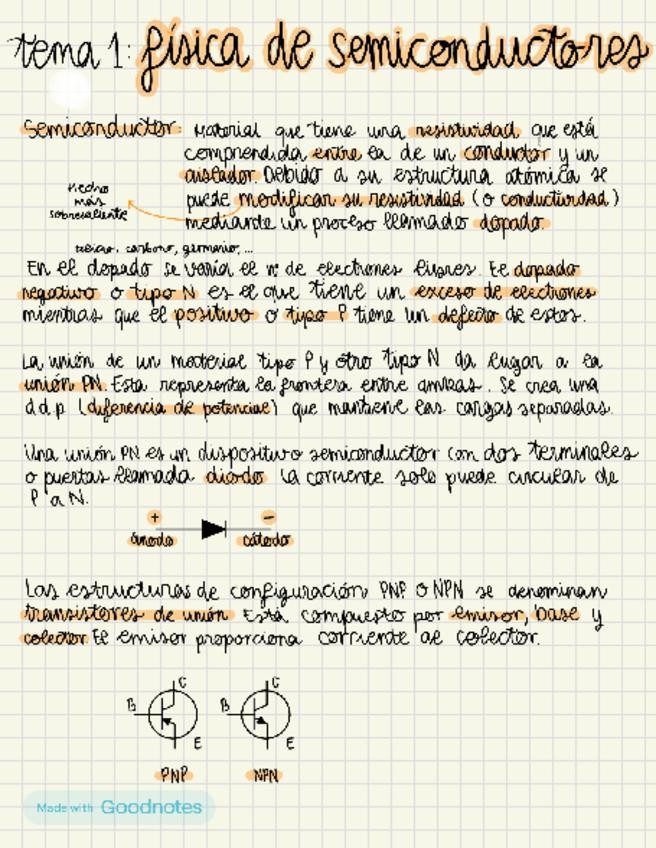 tema 1: física de semiconductores
Semiconductor: Material que tiene una resistividad que está
comprendida entre la de un conductor y un
aislador. Debido a su estructura atómica se
puede modificar su resistividad (o conductividad)
mediante un proceso llamado dopado.
Hecho
más
sobresaliente
carbono, germanio, ...
En el dopado se varía el nº de electrones libres. El dopado
negativo o tipo N es el que tiene un exceso de electrones
mientras que el positivo o tipo P tiene un defecto de estos.
La unión de un material tipo P y otro tipo N da lugar a la
unión PN. Esta representa la frontera entre ambas. Se crea una
d.d.p (diferencia de potencial) que mantiene las cargas separadas.
Una unión PN es un dispositivo semiconductor con dos terminales
o puertas llamada diodo la corriente solo puede circular de
P a N.
+ −
ánodo cátodo
Las estructuras de configuración PNP o NPN se denominan
transistores de unión. Está compuesto por emisor, base y
colector. El emisor proporciona corriente al colector.
C C
B B
E E
PNP NPN
Made with Goodnotes